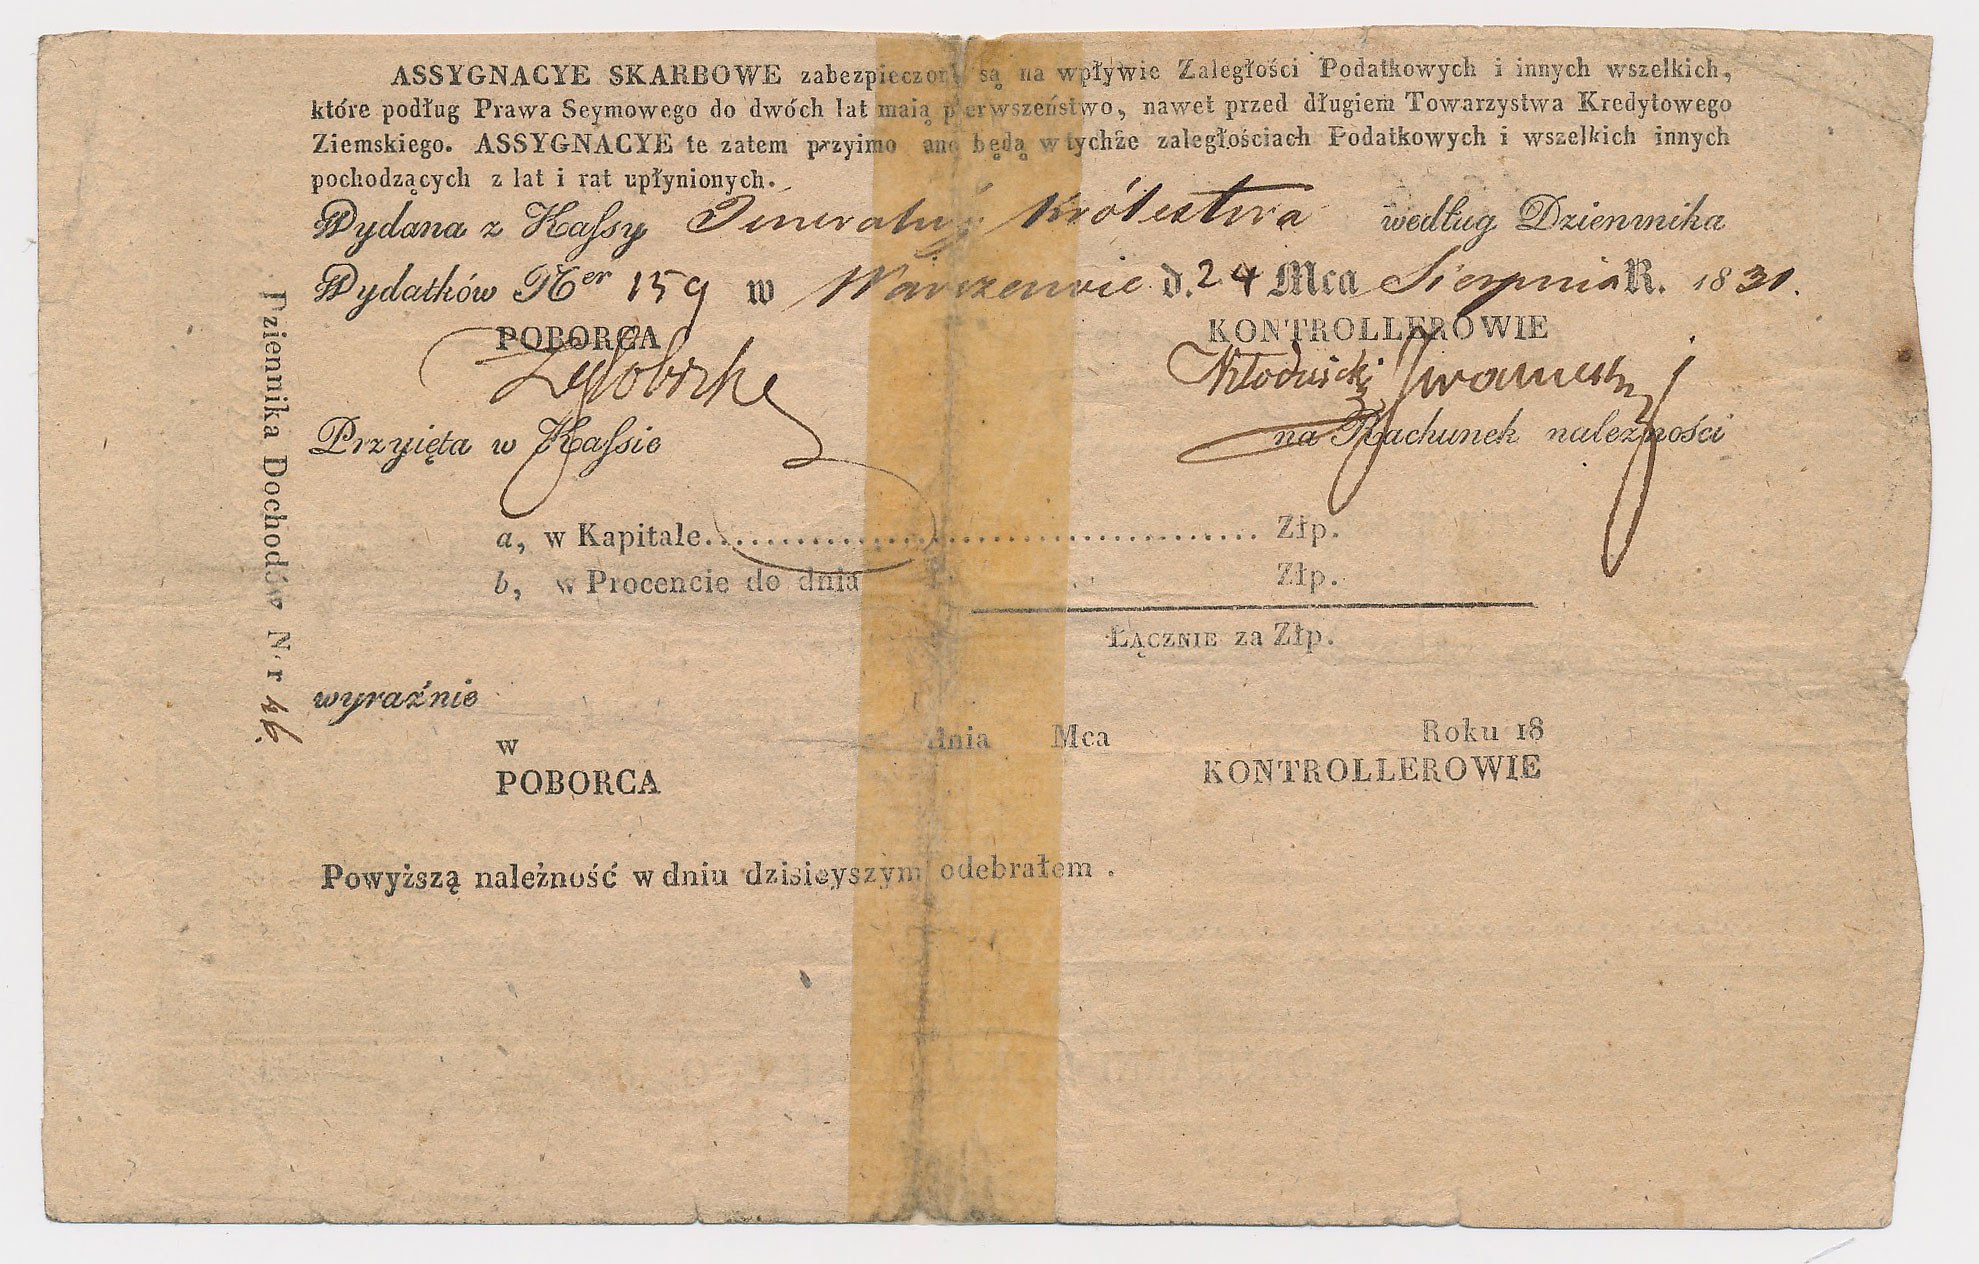 ASSYGNACYE SKARBOWE zabezpieczone są na wpływie Zaległości Podatkowych i innych wszelkich,
które podług Prawa Seymowego do dwóch lat maią pierwszeństwo, nawet przed długiem Towarzystwa Kredytowego
Ziemskiego. ASSYGNACYE te zatem przyimowane będą w tychże zaległościach Podatkowych i wszelkich innych
pochodzących z lat i rat upłynionych.
Wydana z Kassy Jeneralnéj Królestwa według Dziennika
Wydatków Ner 159 w Warszawie d. 24 Mca Sierpnia R. 1831.
POBORCA KONTROLLEROWIE
Przyięta w Kassie na Rachunek należności
a, w Kapitale Złp.
b, w Procencie do dnia Złp.
ŁĄCZNIE za Złp.
wyraźnie
w dnia Mca Roku 18
POBORCA KONTROLLEROWIE
Powyższą należność w dniu dzisieyszym odebrałem.
Dziennika Dochodów Ner